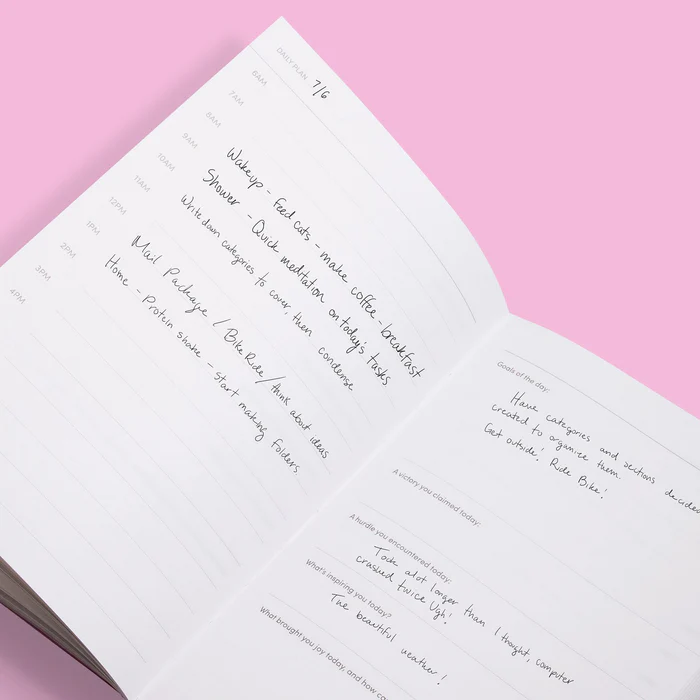 DAILY PLAN
7/6
6AM
7AM
8AM
9AM
Wakeup - Feed cats - make coffee - breakfast
10AM
Shower - Quick meditation on today's tasks
11AM
Write down categories to cover, then condense
12PM
1PM
Mail Package / Bike Ride / think about ideas
2PM
Home - Protein shake - start making folders
3PM
4PM
Goals of the day:
Have categories and sections decided
created to organize them.
Get outside! Ride Bike!
A victory you claimed today:
A hurdle you encountered today:
Took alot longer than I thoight, computer
crashed twice Ugh!
What's inspiring you today?
The beautiful weather!
What brought you joy today, and how co